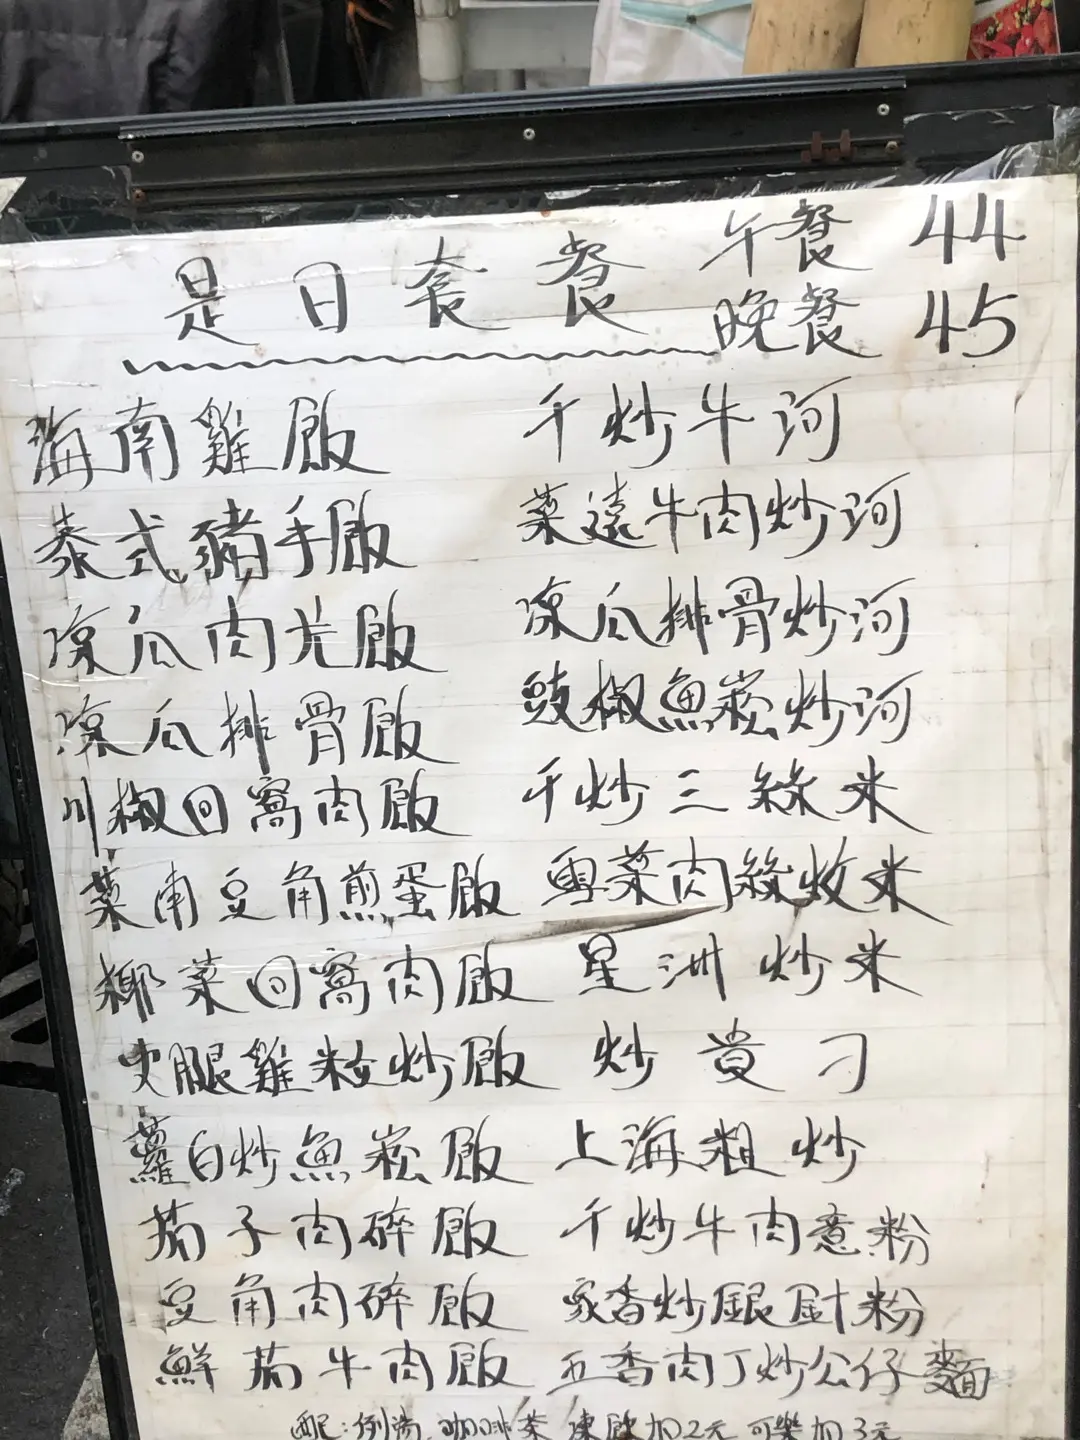 是日套餐 午餐 44
晚餐 45
海南雞飯 干炒牛河
泰式豬手飯 菜遠牛肉炒河
凉瓜肉片飯 凉瓜排骨炒河
凉瓜排骨飯 豉椒魚崧炒河
川椒回窩肉飯 干炒三絲米
菜甫豆角煎蛋飯 雪菜肉絲炆米
椰菜回窩肉飯 星洲炒米
火腿雞粒炒飯 炒貴刁
蘿白炒魚崧飯 上海粗炒
茄子肉碎飯 干炒牛肉意粉
豆角肉碎飯 家香炒銀針粉
鮮茄牛肉飯 五香肉丁炒公仔麵
配:例湯 咖啡茶 凍飲加2元 可樂加3元